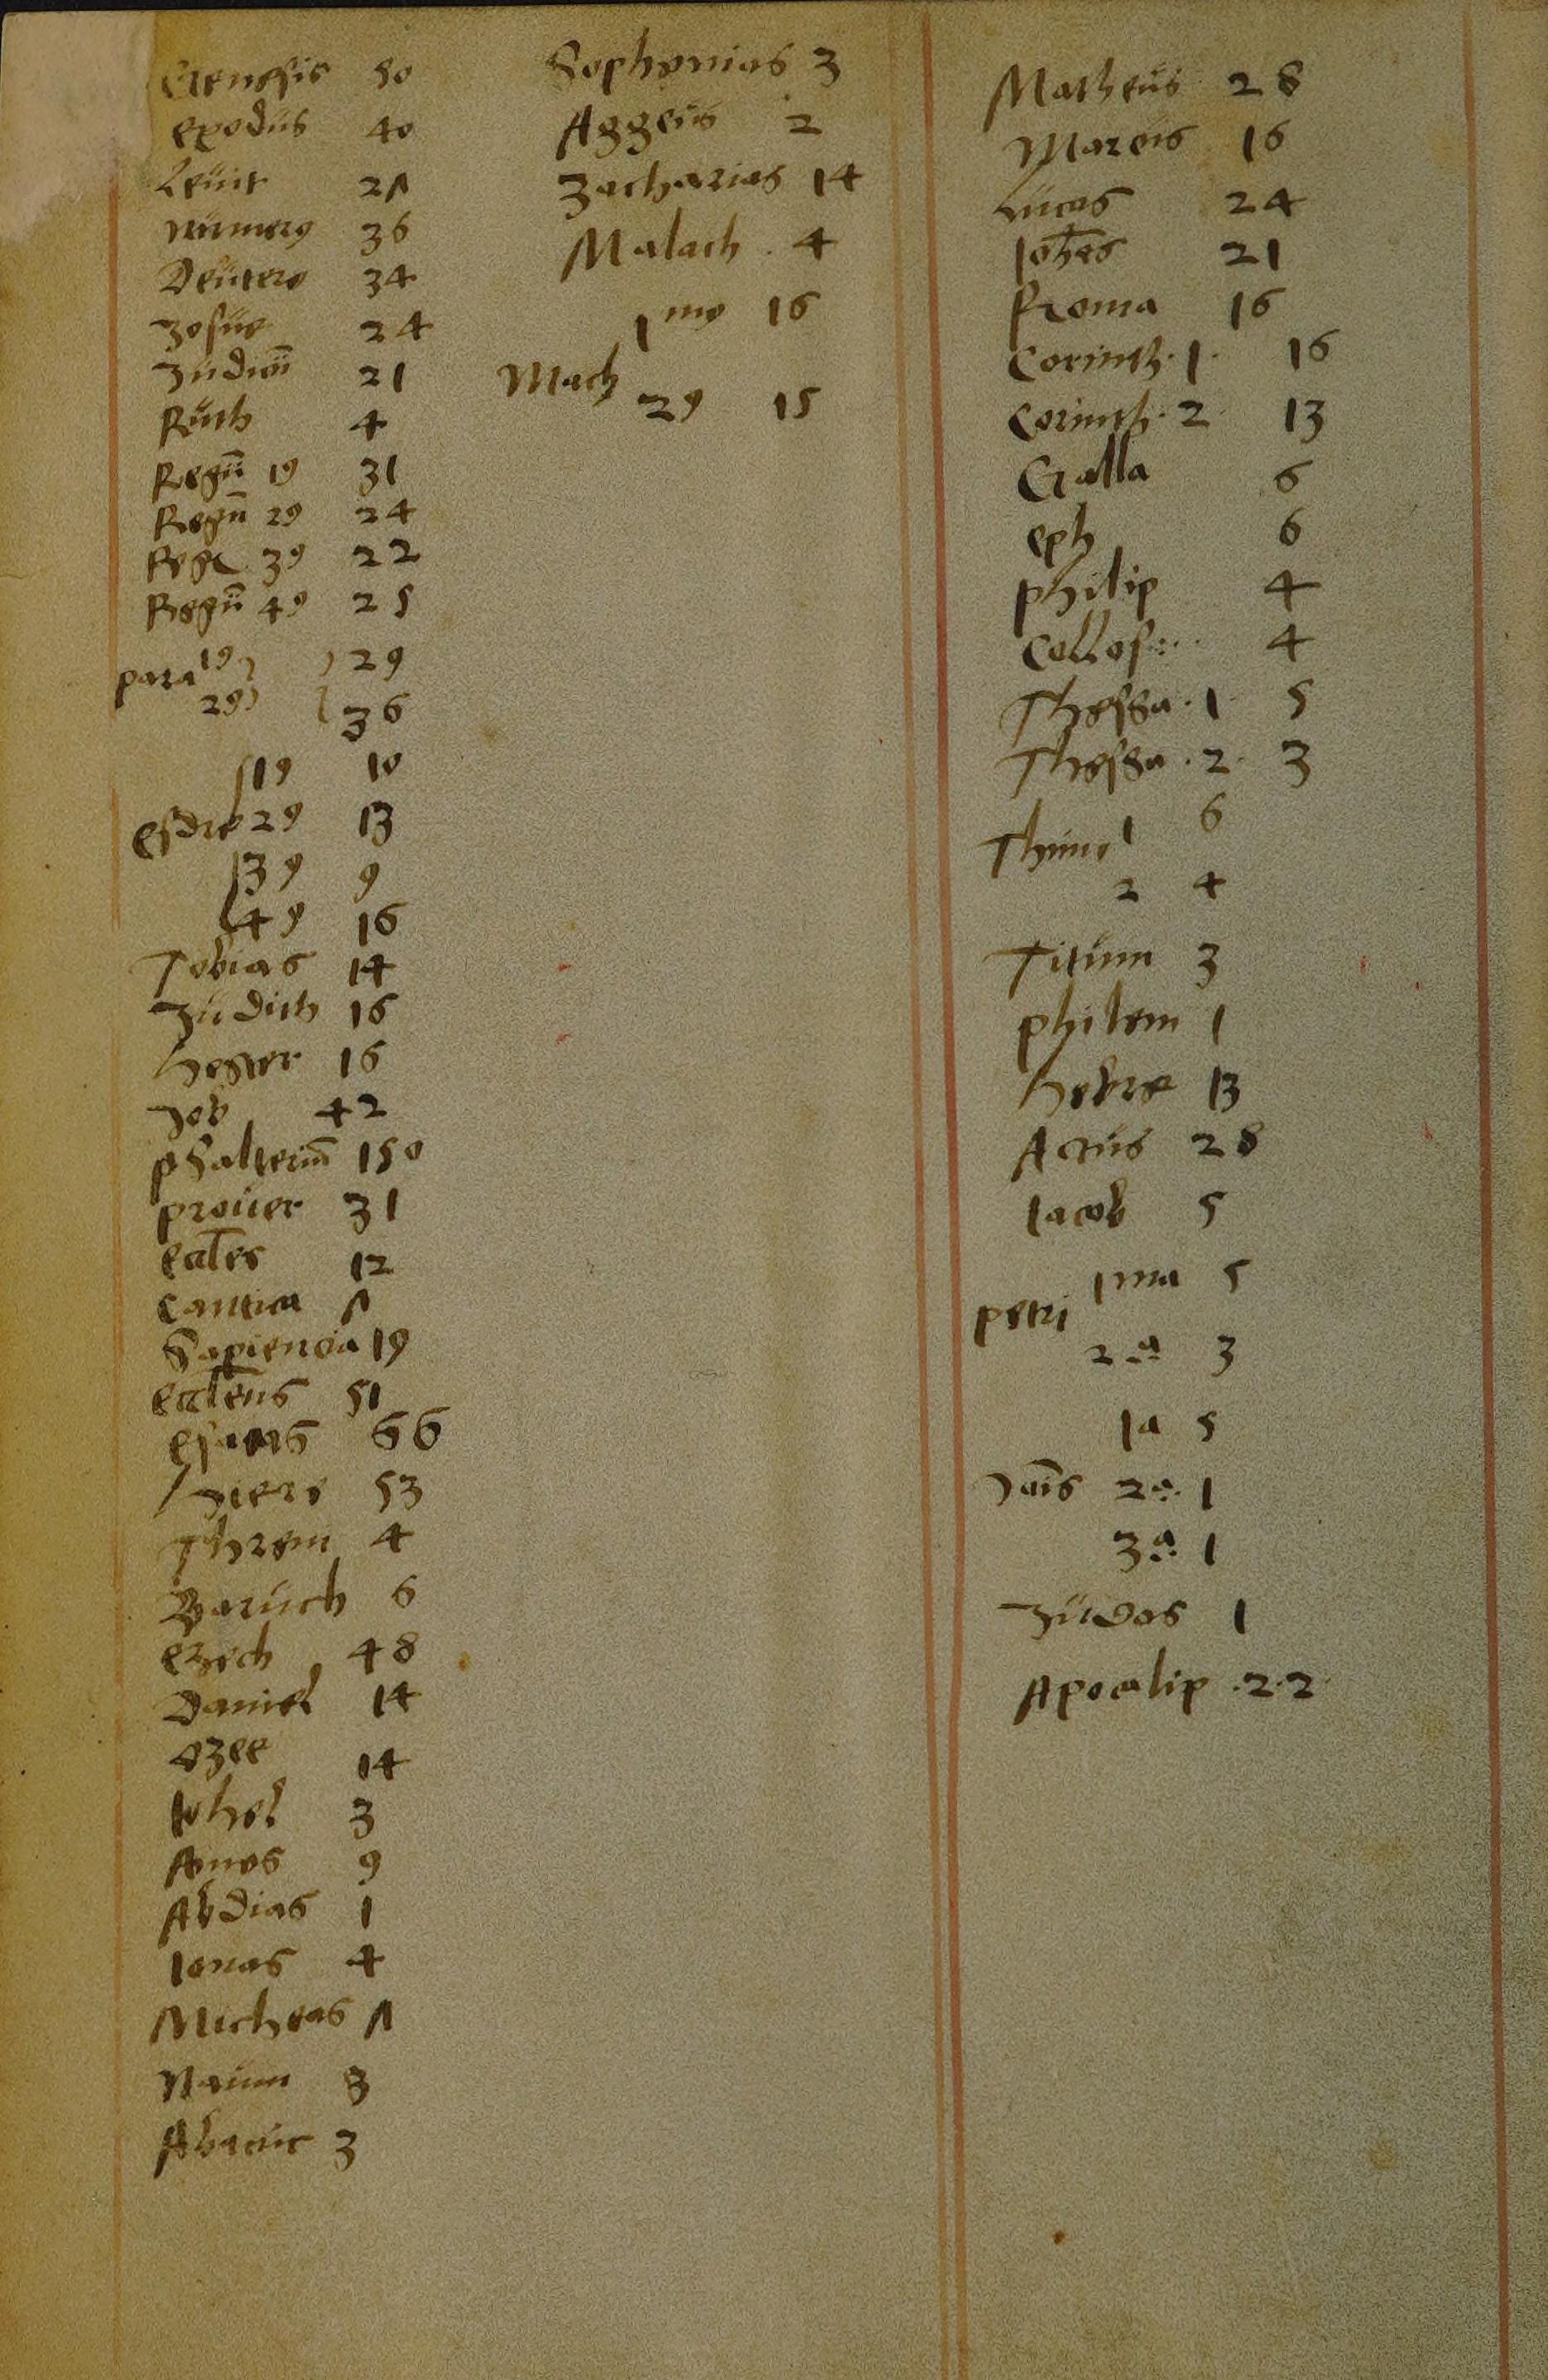 Genesis 50
exodus 40
Leuit 27
numerꝰ 36
Deutero 34
Josue 24
Judicū 21
Ruth 4
Regū 1ꝰ 31
Regū 2ꝰ 24
Regū 3ꝰ 22
Regū 4ꝰ 25
para 1ꝰ 29
2ꝰ 36
1ꝰ 10
esdre 2ꝰ 13
3ꝰ 9
4ꝰ 16
Tobias 14
Judith 16
hester 16
Job 42
psalteriū 150
prouer 31
eccl̄es 12
Cantica 7
Sapiencia 19
eccl̄eus 51
esaias 66
hiere 53
Thren 4
Baruch 6
ezech 48
Daniel 14
ozee 14
Iohel 3
Amos 9
Abdias 1
Ionas 4
Micheas 7
Naum 3
Abacuc 3
Sophonias 3
Aggeus 2
Zacharias 14
Malach . 4
1mo 16
Mach
2ꝰ 15
Matheus 28
Marcus 16
Lucas 24
Ioh̄es 21
Roma 16
Corinth . 1 . 16
Corinth . 2 13
Galla 6
eph 6
philip 4
Collos 4
Thessa . 1 . 5
Thessa . 2 . 3
Thimo 1 6
2 4
Titum 3
philem 1
hebre 13
Actus 28
Iacob 5
1ma 5
petri
2a 3
1a 5
Jōis 2a 1
3a 1
Judas 1
Apocalip . 2 . 2